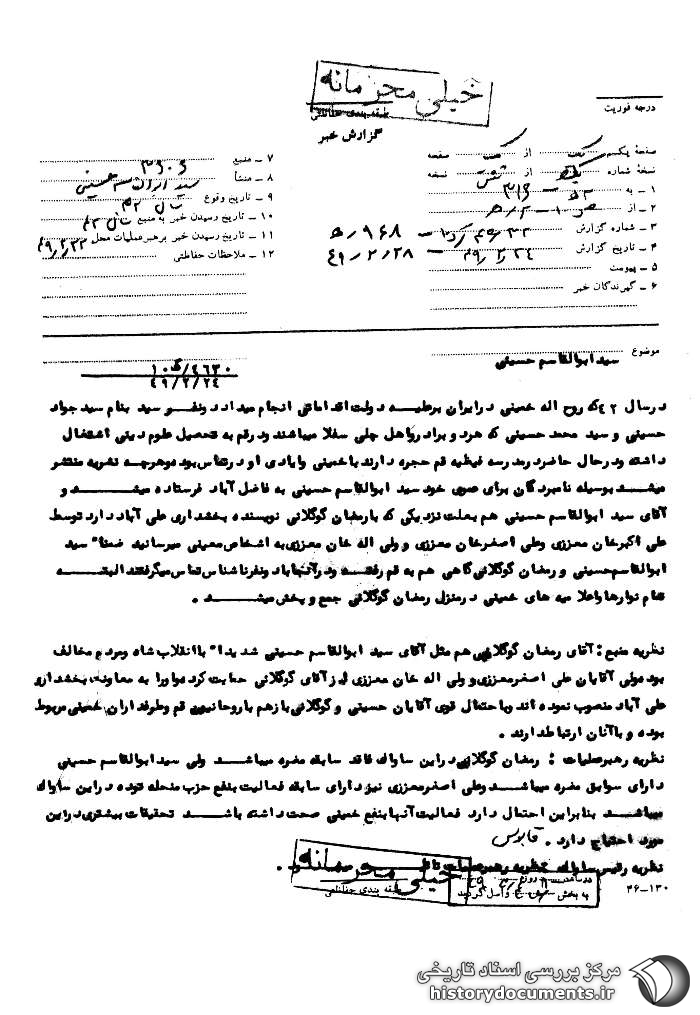 خیلی محرمانه
طبقه بندی حفاظتی
گزارش خبر
درجه فوریت
صفحه یکم از صفحه
نسخه شماره یک از شش نسخه
۱ ـ به ۳۱۶
۲ ـ از
۳ ـ شماره گزارش
۴ ـ تاریخ گزارش ۴۹/۲/۲۴ ـ ۴۹/۲/۲۸
۵ ـ پیوست
۶ ـ گیرندگان خبر
۷ ـ منبع ۳۶۰۶
۸ ـ منشأ سید ابوالقاسم حسینی
۹ ـ تاریخ وقوع سال ۴۲
۱۰ ـ تاریخ رسیدن خبر به منبع سال ۴۲
۱۱ ـ تاریخ رسیدن خبر برهبر عملیات محل ۴۹/۲/۲۳
۱۲ ـ ملاحظات حفاظتی
موضوع سید ابوالقاسم حسینی
۴۹/۲/۲۴
در سال ۴۲ که روح اله خمینی در ایران بر علیه دولت اقداماتی انجام میداد دو نفر سید بنام سید جواد
حسینی و سید محمد حسینی که هر دو برادر و اهل چلی سفلا میباشند و در قم به تحصیل علوم دینی اشتغال
داشته و در حال حاضر در مدرسه فیظیه قم حجره دارند با خمینی و ایادی او در تماس بوده و هر چه نشریه منتشر
میشد بوسیله نامبردگان برای عموی خود سید ابوالقاسم حسینی به فاضل آباد فرستاده میشد و
آقای سید ابوالقاسم حسینی هم بعلت نزدیکی که با رمضان کوکلانی نویسنده بخشداری علی آباد دارد توسط
علی اکبر خان معززی و علی اصغر خان معززی و ولی اله خان معززی به اشخاص معینی میرسانید ضمنا" سید
ابوالقاسم حسینی و رمضان کوکلانی گاهی هم به قم رفته و در آنجا با دو نفر ناشناس تماس میگرفتند البته
تمام نوارها و اعلامیه های خمینی در منزل رمضان کوکلانی جمع و پخش میشد .
نظریه منبع : آقای رمضان کوکلانی هم مثل آقای سید ابوالقاسم حسینی شدیدا" با انقلاب شاه و مردم مخالف
بوده ولی آقایان علی اصغر معززی و ولی اله خان معززی از آقای کوکلانی حمایت کرده و او را به معاونت بخشداری
علی آباد منصوب نموده اند و با حتمال قوی آقایان حسینی و کوکلانی باز هم با روحانیون قم و طرفداران خمینی مربوط
بوده و با آنان ارتباط دارند .
نظریه رهبر عملیات : رمضان کوکلانی در این ساواک فاقد سابقه مضره میباشد ولی سید ابوالقاسم حسینی
دارای سوابق مضره میباشد و علی اصغر معززی نیز دارای سابقه فعالیت بنفع حزب منحله توده در این ساواک
میباشد بنابراین احتمال دارد فعالیت آنها بنفع خمینی صحت داشته باشد تحقیقات بیشتری در این
مورد احتیاج دارد . قابوس
نظریه رئیس ساواک نظریه رهبر عملیات
خیلی محرمانه
طبقه بندی حفاظتی
در ساعت روز
به بخش واصل گردید
۳۶-۱۳۰
مرکز بررسی اسناد تاریخی
historydocuments.ir